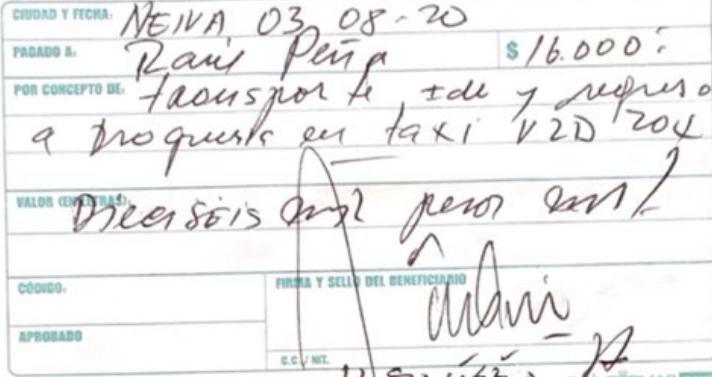 CIUDAD Y FECHA: NEIVA 03 08-20
PAGADO A: Raul Peña $ 16.000
POR CONCEPTO DE: transporte ida y regreso
a en taxi VZD 204
VALOR (EN LETRAS): Dieciséis mil pesos
CÓDIGO: FIRMA Y SELLO DEL BENEFICIARIO
APROBADO
C.C./NIT.